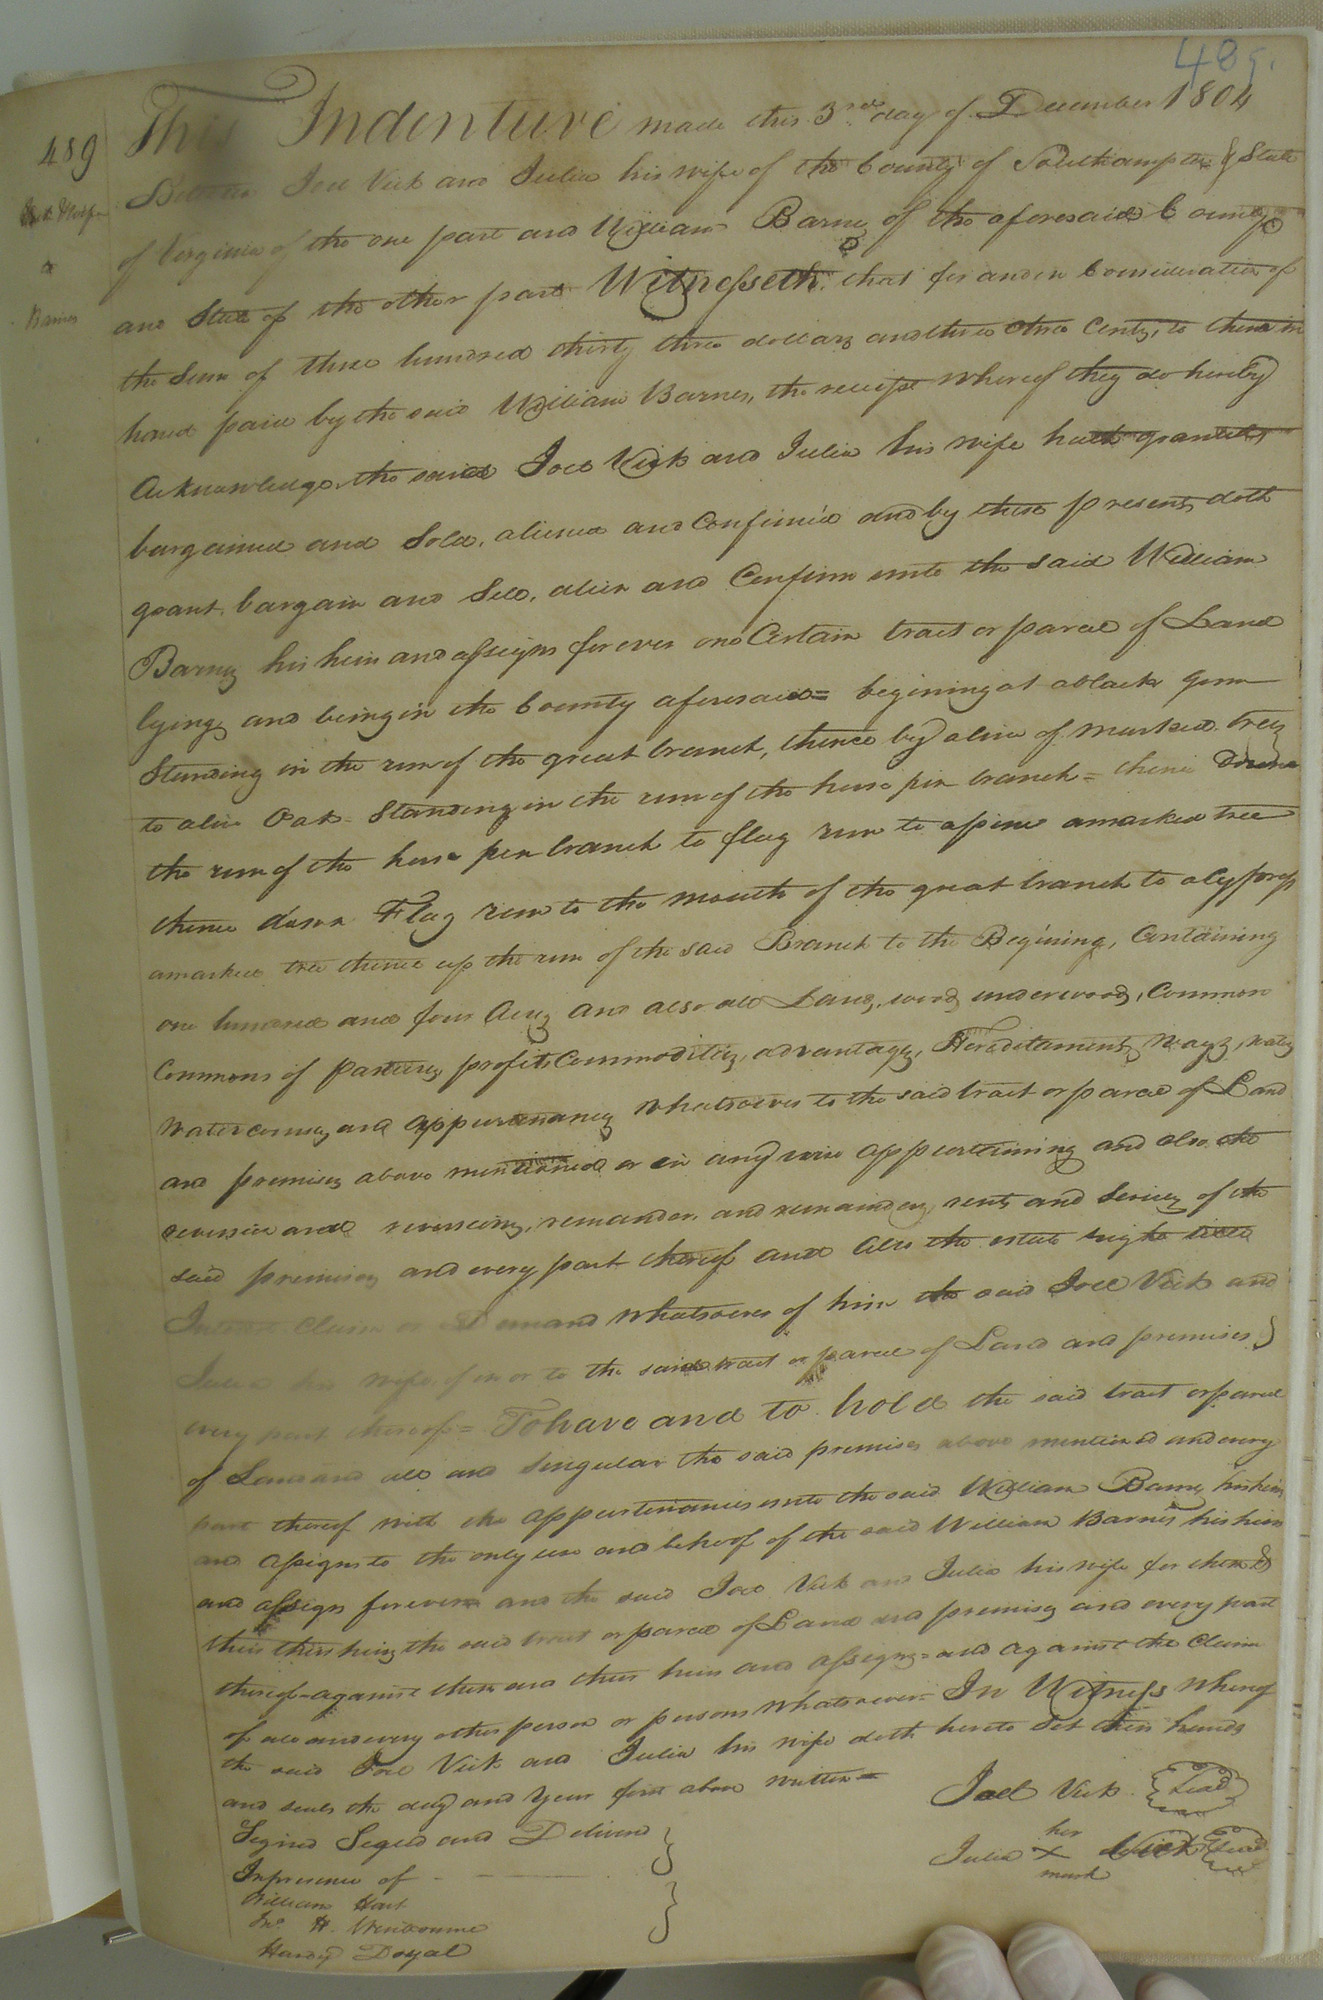 489.
489
This Indenture made this 3rd day of December 1804
Between Joel Vick and Julia his wife of the County of Southampton & State
of Virginia of the one part and William Barnes of the aforesaid County
Vick & Wife
to
Barnes
and State of the other part Witnesseth, that for and in Consideration of
the Sum of three hundred thirty three dollars and three three Cents, to them in
hand paid by the said William Barnes, the receipt whereof they do hereby
Acknowledge, the said Joel Vick and Julia his wife hath granted
bargained and Sold, aliened and Confirmed and by these presents doth
grant, bargain and Sell, alien and Confirm unto the said William
Barnes his heirs and assigns forever one Certain tract or parcel of Land
lying and being in the County aforesaid = begining at a black gum
Standing in the run of the great branch, thence by a line of marked trees
to a live Oak Standing in the run of the horse pen branch = thence down
the run of the horse pen branch to flag run to a pine a marked tree
thence down Flag run to the mouth of the great branch to a Cypress
a marked tree thence up the run of the said Branch to the Begining, Containing
one hundred and four Acres and also all Lands, woods underwoods, Commons
Commons of pastures, profits Commodities, advantages, Hereditaments, Ways, waters
Watercourses, and appurtenances whatsoever to the said tract or parcel of Land
and premises above mentioned or in any wise appertaining and also the
reversion and reversions, remander, and remainders, rents and Services of the
said premises and every part thereof and also the estate right title
Interest Claim or Demand whatsoever of him the said Joel Vick and
Julia his wife of in or to the said tract or parcel of Land and premises
every part thereof = To have and to hold the said tract or parcel
of Land and all and Singular the said premises above mentioned and every
part thereof with the appurtenances unto the said William Barnes his heirs
and assigns to the only use and behoof of the said William Barnes his heirs
and assigns forever and the said Joel Vick and Julia his wife for them &
their heirs the said tract or parcel of Land and premises and every part
thereof = against them and their heirs and assigns = and against the Claim
of all and every other person or persons whatsoever = In Witness whereof
the said Joel Vick and Julia his wife doth hereto Set their hands
and seals the day and Year first above written =
Joel Vick Seal
Signed Sealed and Delivered
her
Julia X Vick Seal
mark
In presence of
William Hart
Jno. H. Wenbourne
Hardy Doyal